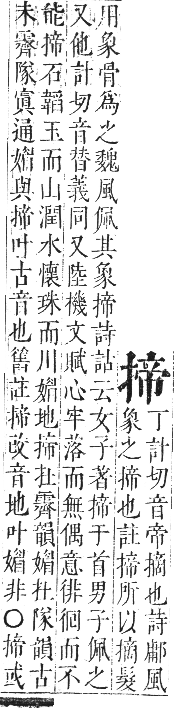 揥
丁計切音帝摘也詩鄘風
象之揥也註揥所以摘髮
用象骨爲之魏風佩其象揥詩詁云女子著揥于首男子佩之
又他計切音替義同又陸機文賦心牢落而無偶意徘徊而不
能揥石韞玉而山潤水懷珠而川媚地揥扗霽韻媚扗隊韻古
未霽隊寘通媚與揥叶古音也舊註揥改音地叶媚非○揥或